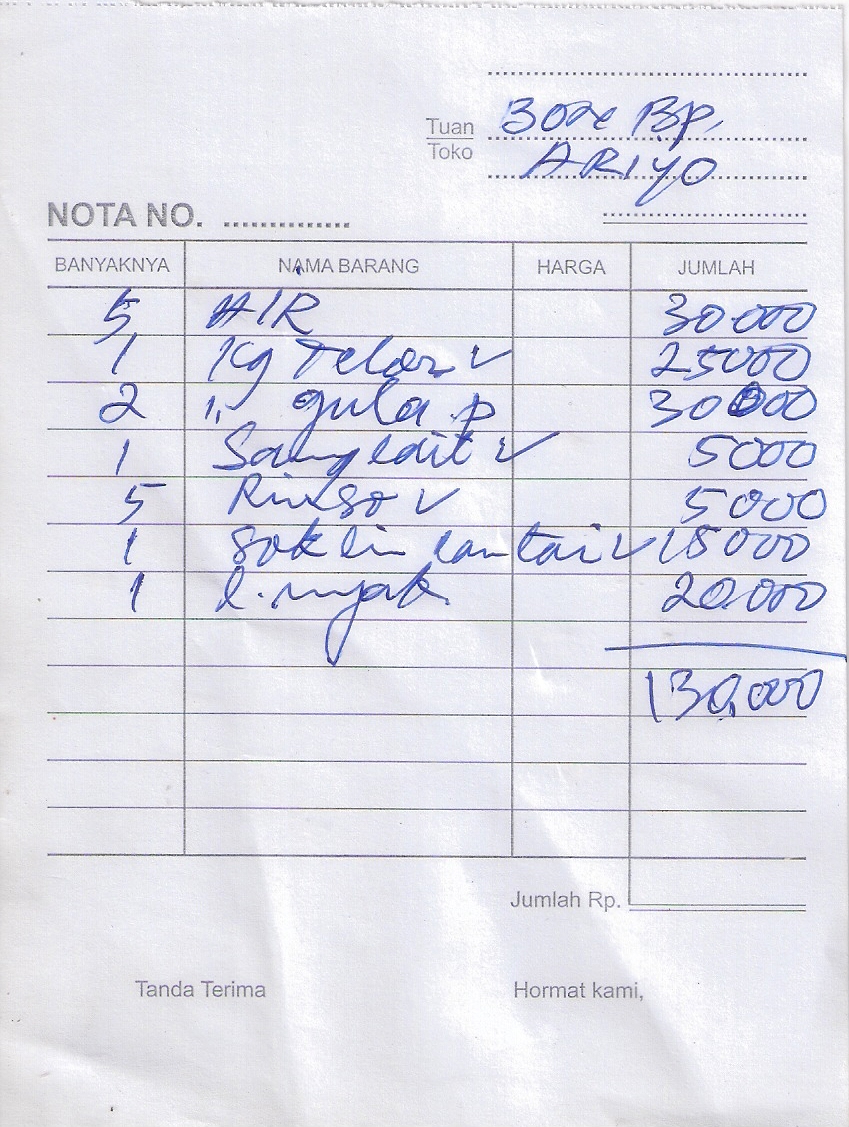 Tuan
Toko
Bose Bp.
ARIYO
NOTA NO. ....................
BANYAKNYA NAMA BARANG HARGA JUMLAH
5 AIR 30000
1 Kg Telor ✓ 25000
2 〃 gula p 30000
1 Sanglait ✓ 5000
5 Rinso ✓ 5000
1 Soklin lantai ✓ 15000
1 l. myak 20.000
130.000
Jumlah Rp.
Tanda Terima Hormat kami,